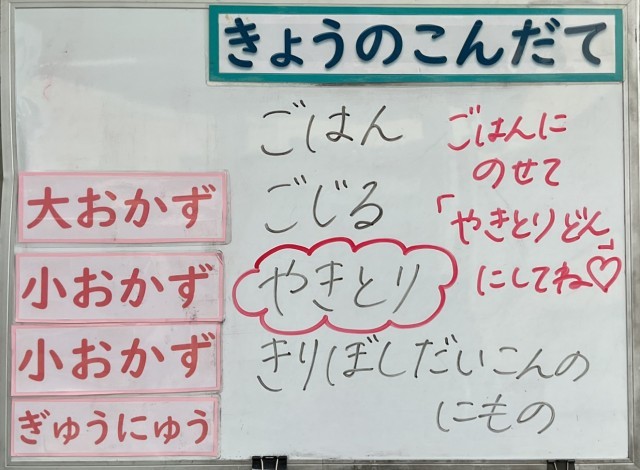 きょうのこんだて
ごはん
大おかず ごじる
小おかず やきとり
小おかず きりぼしだいこんの
にもの
ぎゅうにゅう
ごはんに
のせて
「やきとりどん」
にしてね♡